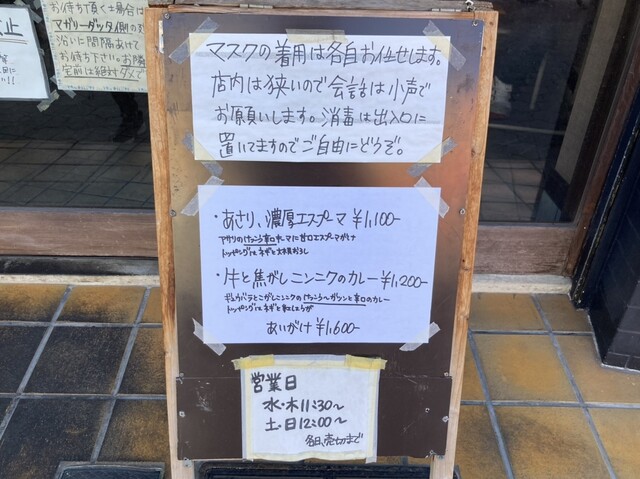 お待ち頂く場合は
マガリーダッタイ側の
沿いに間隔あけて
お待ち下さい。お隣
宅前は絶対ダメで
止
マスクの着用は各自お任せします。
店内は狭いので会話は小声で
お願いします。消毒は出入口に
置いてますのでご自由にどうぞ。
・あさり、濃厚エスプーマ ¥1,100-
アサリのけっこう辛口キーマに甘口エスプーマがけ
トッピングにネギと大根おろし
・牛と焦がしニンニクのカレー ¥1,200-
ギュウバラとこがしニンニクのけっこう〜ガツンと辛口のカレー
トッピングにネギと紅しょうが
あいがけ ¥1,600-
営業日
水・木 11:30〜
土・日 12:00〜
各日、売切まで